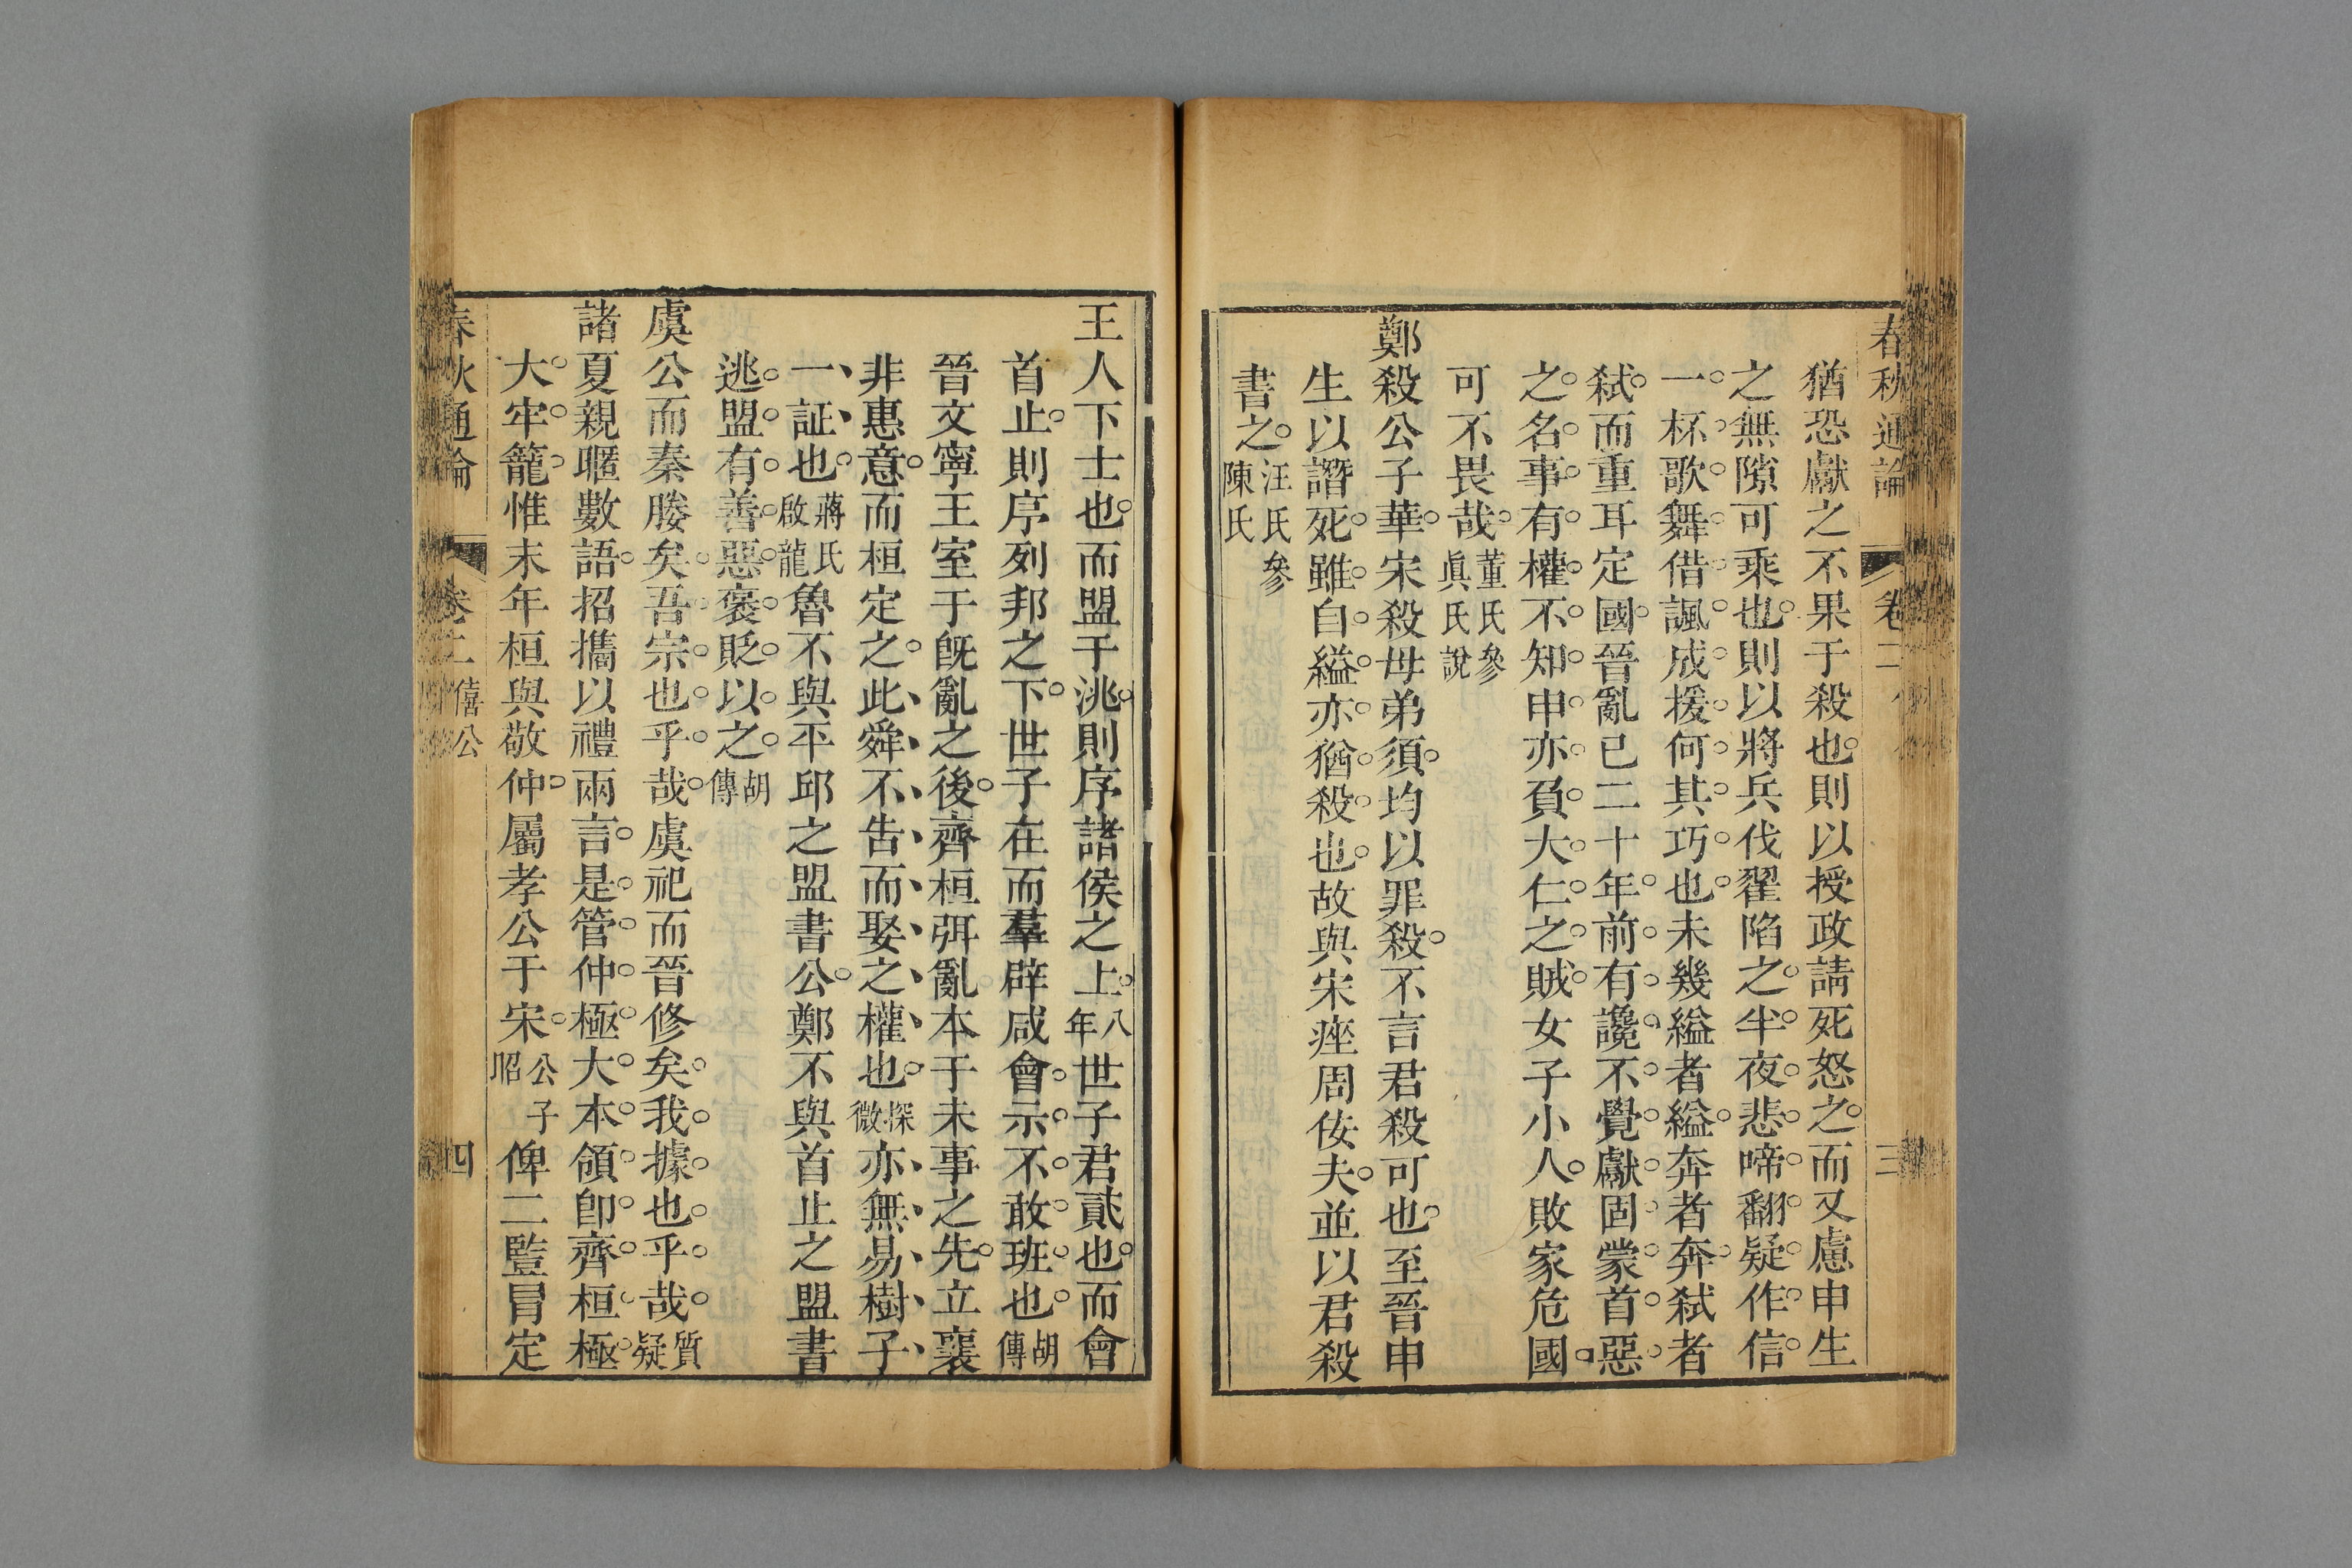 春秋通論 卷二 三
猶恐獻之不果于殺也則以授政請死怒之而又慮申生
之無隙可乘也則以將兵伐翟陷之半夜悲啼翻疑作信
一杯歌舞借諷成援何其巧也未幾縊者縊奔者奔弒者
弒而重耳定國晉亂已二十年前有讒不覺獻固蒙首惡
之名事有權不知申亦負大仁之賊女子小人敗家危國
可不畏哉董氏參眞氏說
鄭殺公子華宋殺母弟須均以罪殺不言君殺可也至晉申
生以譖死雖自縊亦猶殺也故與宋痤周佞夫並以君殺
書之汪氏參陳氏
王人下士也而盟于洮則序諸侯之上八年世子君貳也而會
首止則序列邦之下世子在而羣辟咸會示不敢班也胡傳
晉文寧王室于旣亂之後齊桓弭亂本于未事之先立襄
非惠意而桓定之此舜不告而娶之權也探微亦無易樹子
一証也蔣氏啟龍魯不與平邱之盟書公鄭不與首止之盟書
逃盟有善惡褒貶以之胡傳
虞公而秦媵矣吾宗也乎哉虞祀而晉修矣我據也乎哉質疑
諸夏親暱數語招攜以禮兩言是管仲極大本領卽齊桓極
大牢籠惟末年桓與敬仲屬孝公于宋公子昭俾二豎冒定
春秋通論 卷二 僖公 四